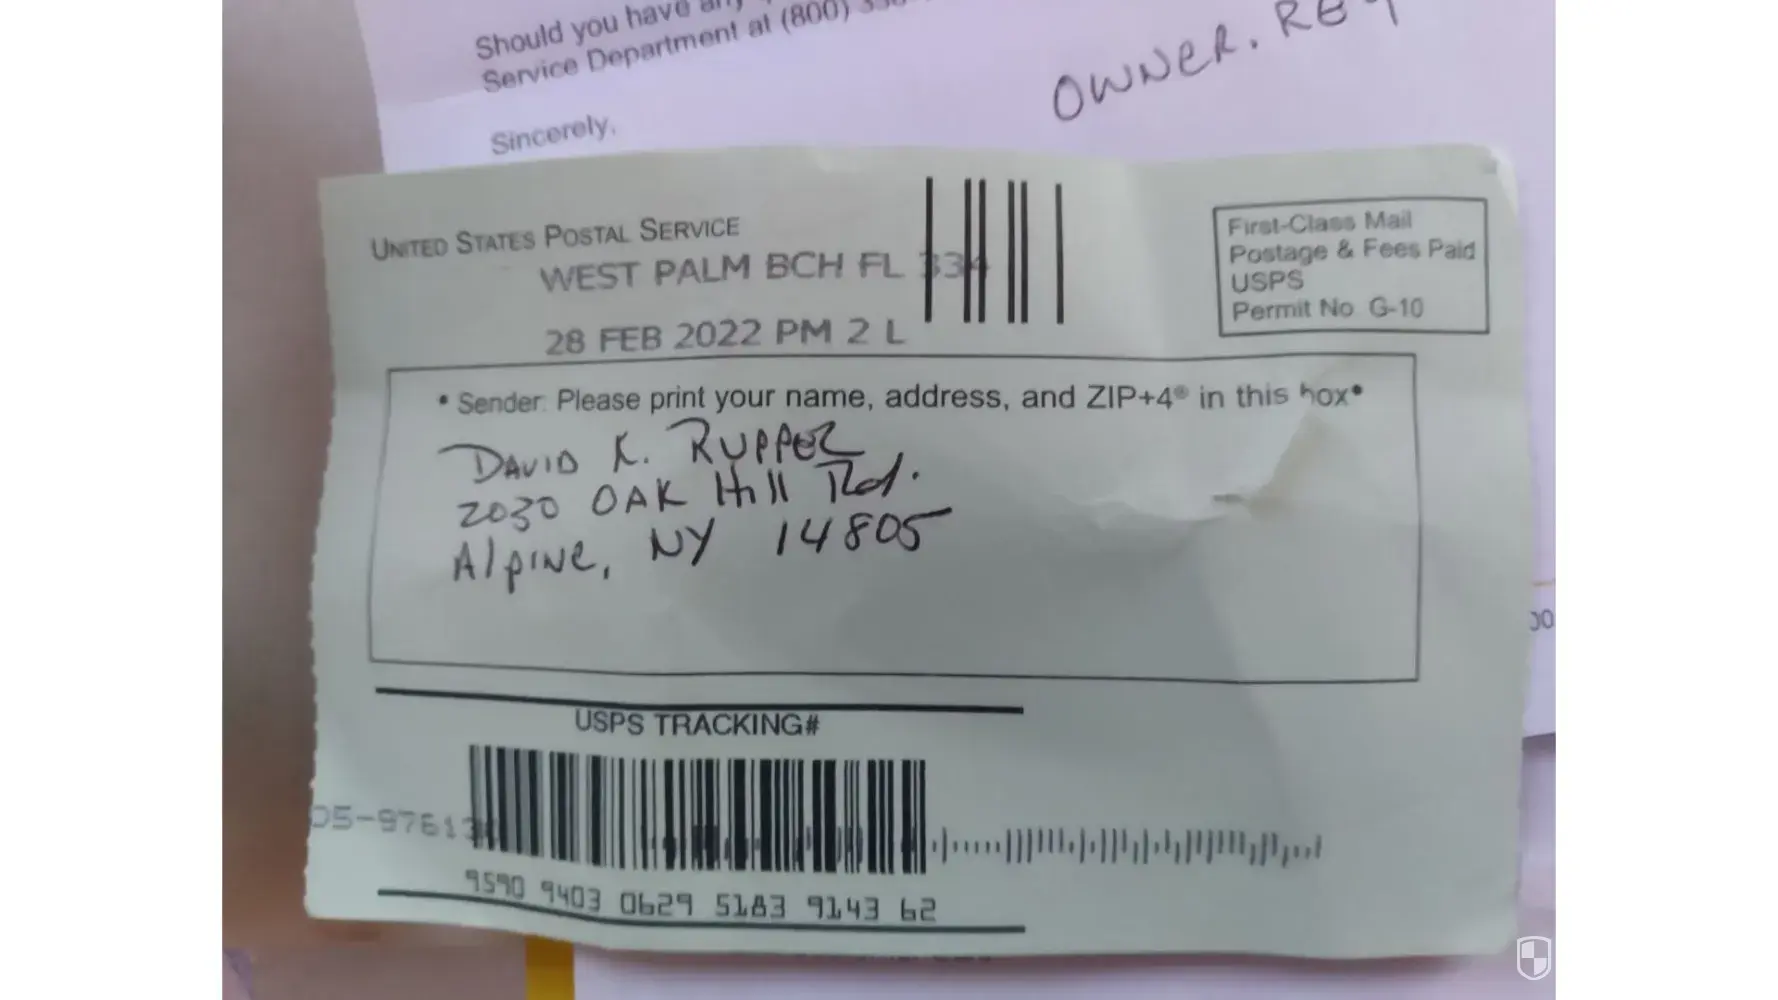 Should you have any
Service Department at (800)
OWNER.
Sincerely,
UNITED STATES POSTAL SERVICE
WEST PALM BCH FL 334
28 FEB 2022 PM 2 L
First-Class Mail
Postage & Fees Paid
USPS
Permit No. G-10
• Sender: Please print your name, address, and ZIP+4® in this box•
DAVID K. RUPPEL
2030 OAK Hill Rd.
Alpine, NY 14805
USPS TRACKING#
05-9761
9590 9403 0629 5183 9143 62